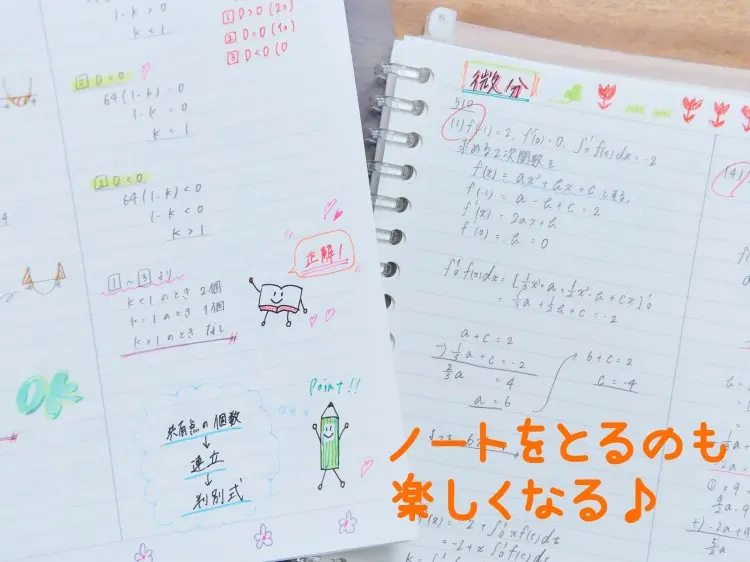 1-k>0
k<1
① D>0 (2コ)
② D=0 (1コ)
③ D<0 (0
② D=0
64(1-k)=0
1-k=0
k=1
③ D<0
64(1-k)<0
1-k<0
k>1
①~③より
k<1のとき 2個
k=1のとき 1個
k>1のとき なし
正解!
OK
Point!!
共有点の個数
↓
連立
↓
判別式
微分
510
(1) f(-1)=2, f'(0)=0, ∫₀¹f(x)dx=-2
求める2次関数を
f(x)=ax²+bx+cとする
f(-1)=a-b+c=2
f'(x)=2ax+b
f'(0)=b=0
∫₀¹f(x)dx=[1/3x³・a+1/2x²・b+cx]₀¹
=1/3a+1/2b+c=-2
a+c=2
-) 1/3a+c=-2
2/3a=4
a=6
6+c=2
c=-4
よって
(4)
ノートをとるのも
楽しくなる♪